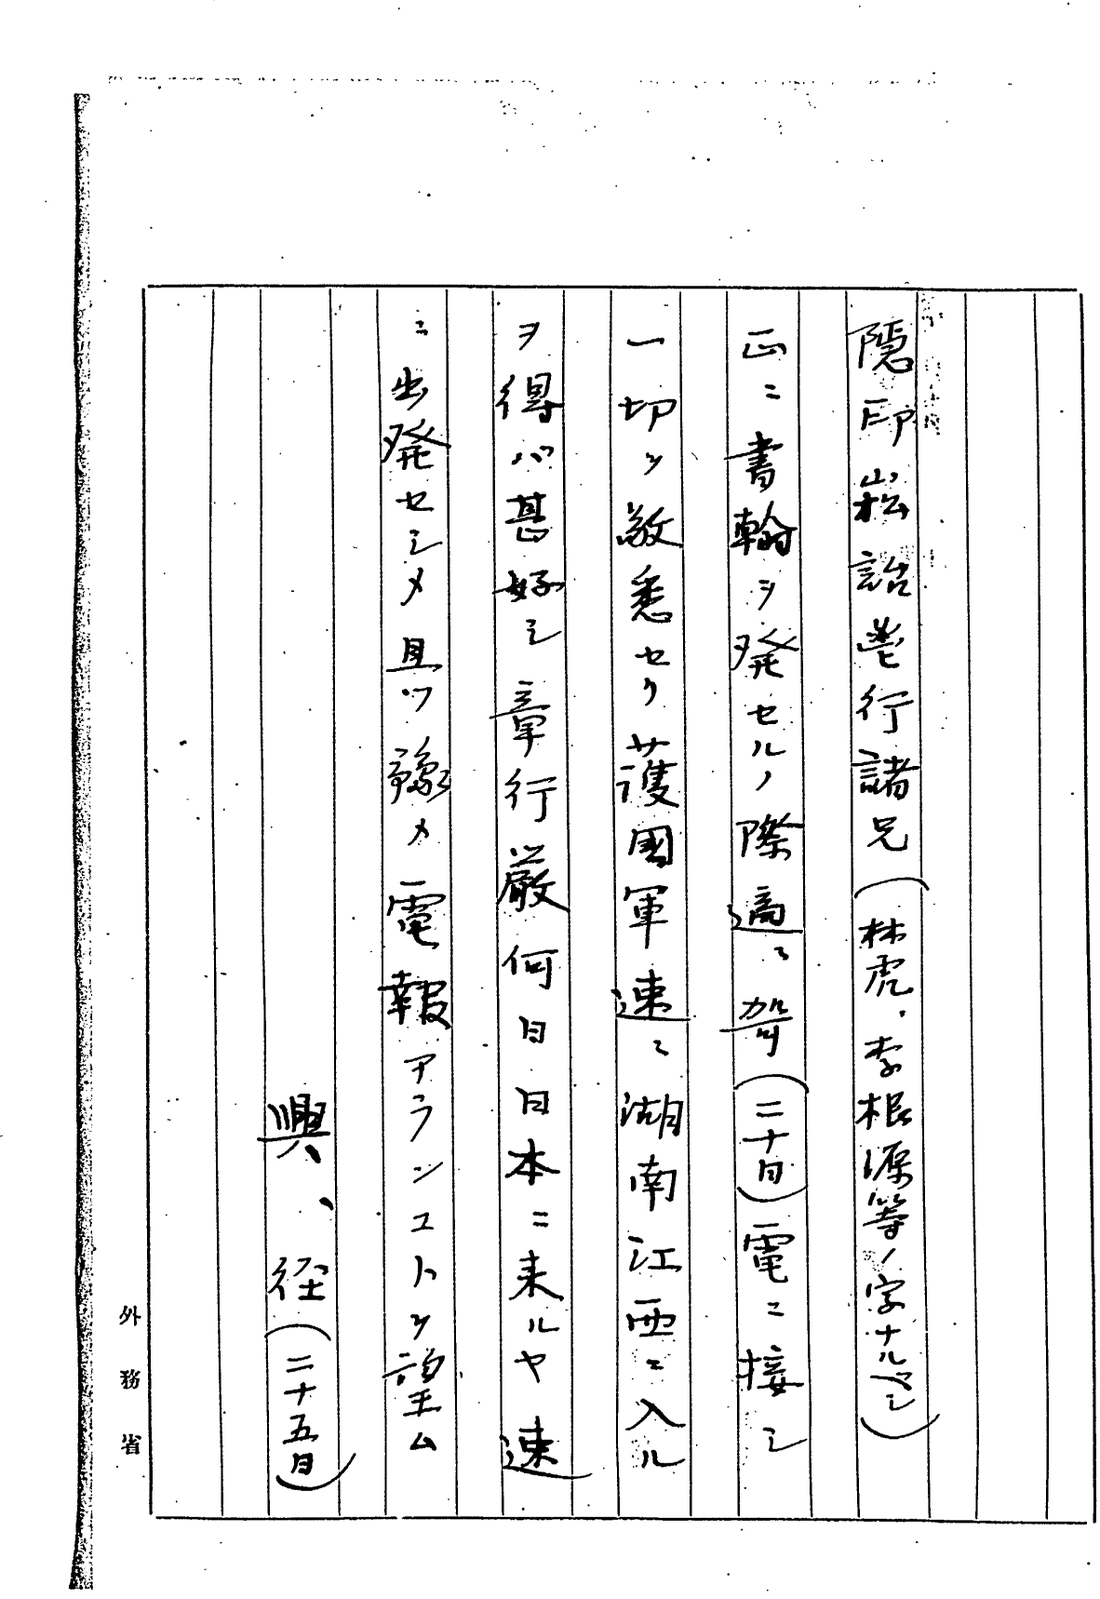 隠印崧詒 行諸兄(林虎、李根源等ノ字ナルベシ)
正ニ書翰ヲ発セルノ際適々哿(二十日)電ニ接シ
一切ヲ敬悉セリ護國軍速ニ湖南江西ニ入ル
ヲ得バ甚好シ章行厳何日日本ニ来ルヤ速
ニ出発セシメ且ツ豫メ電報アランコトヲ望ム
興、径(二十五日)
外務省